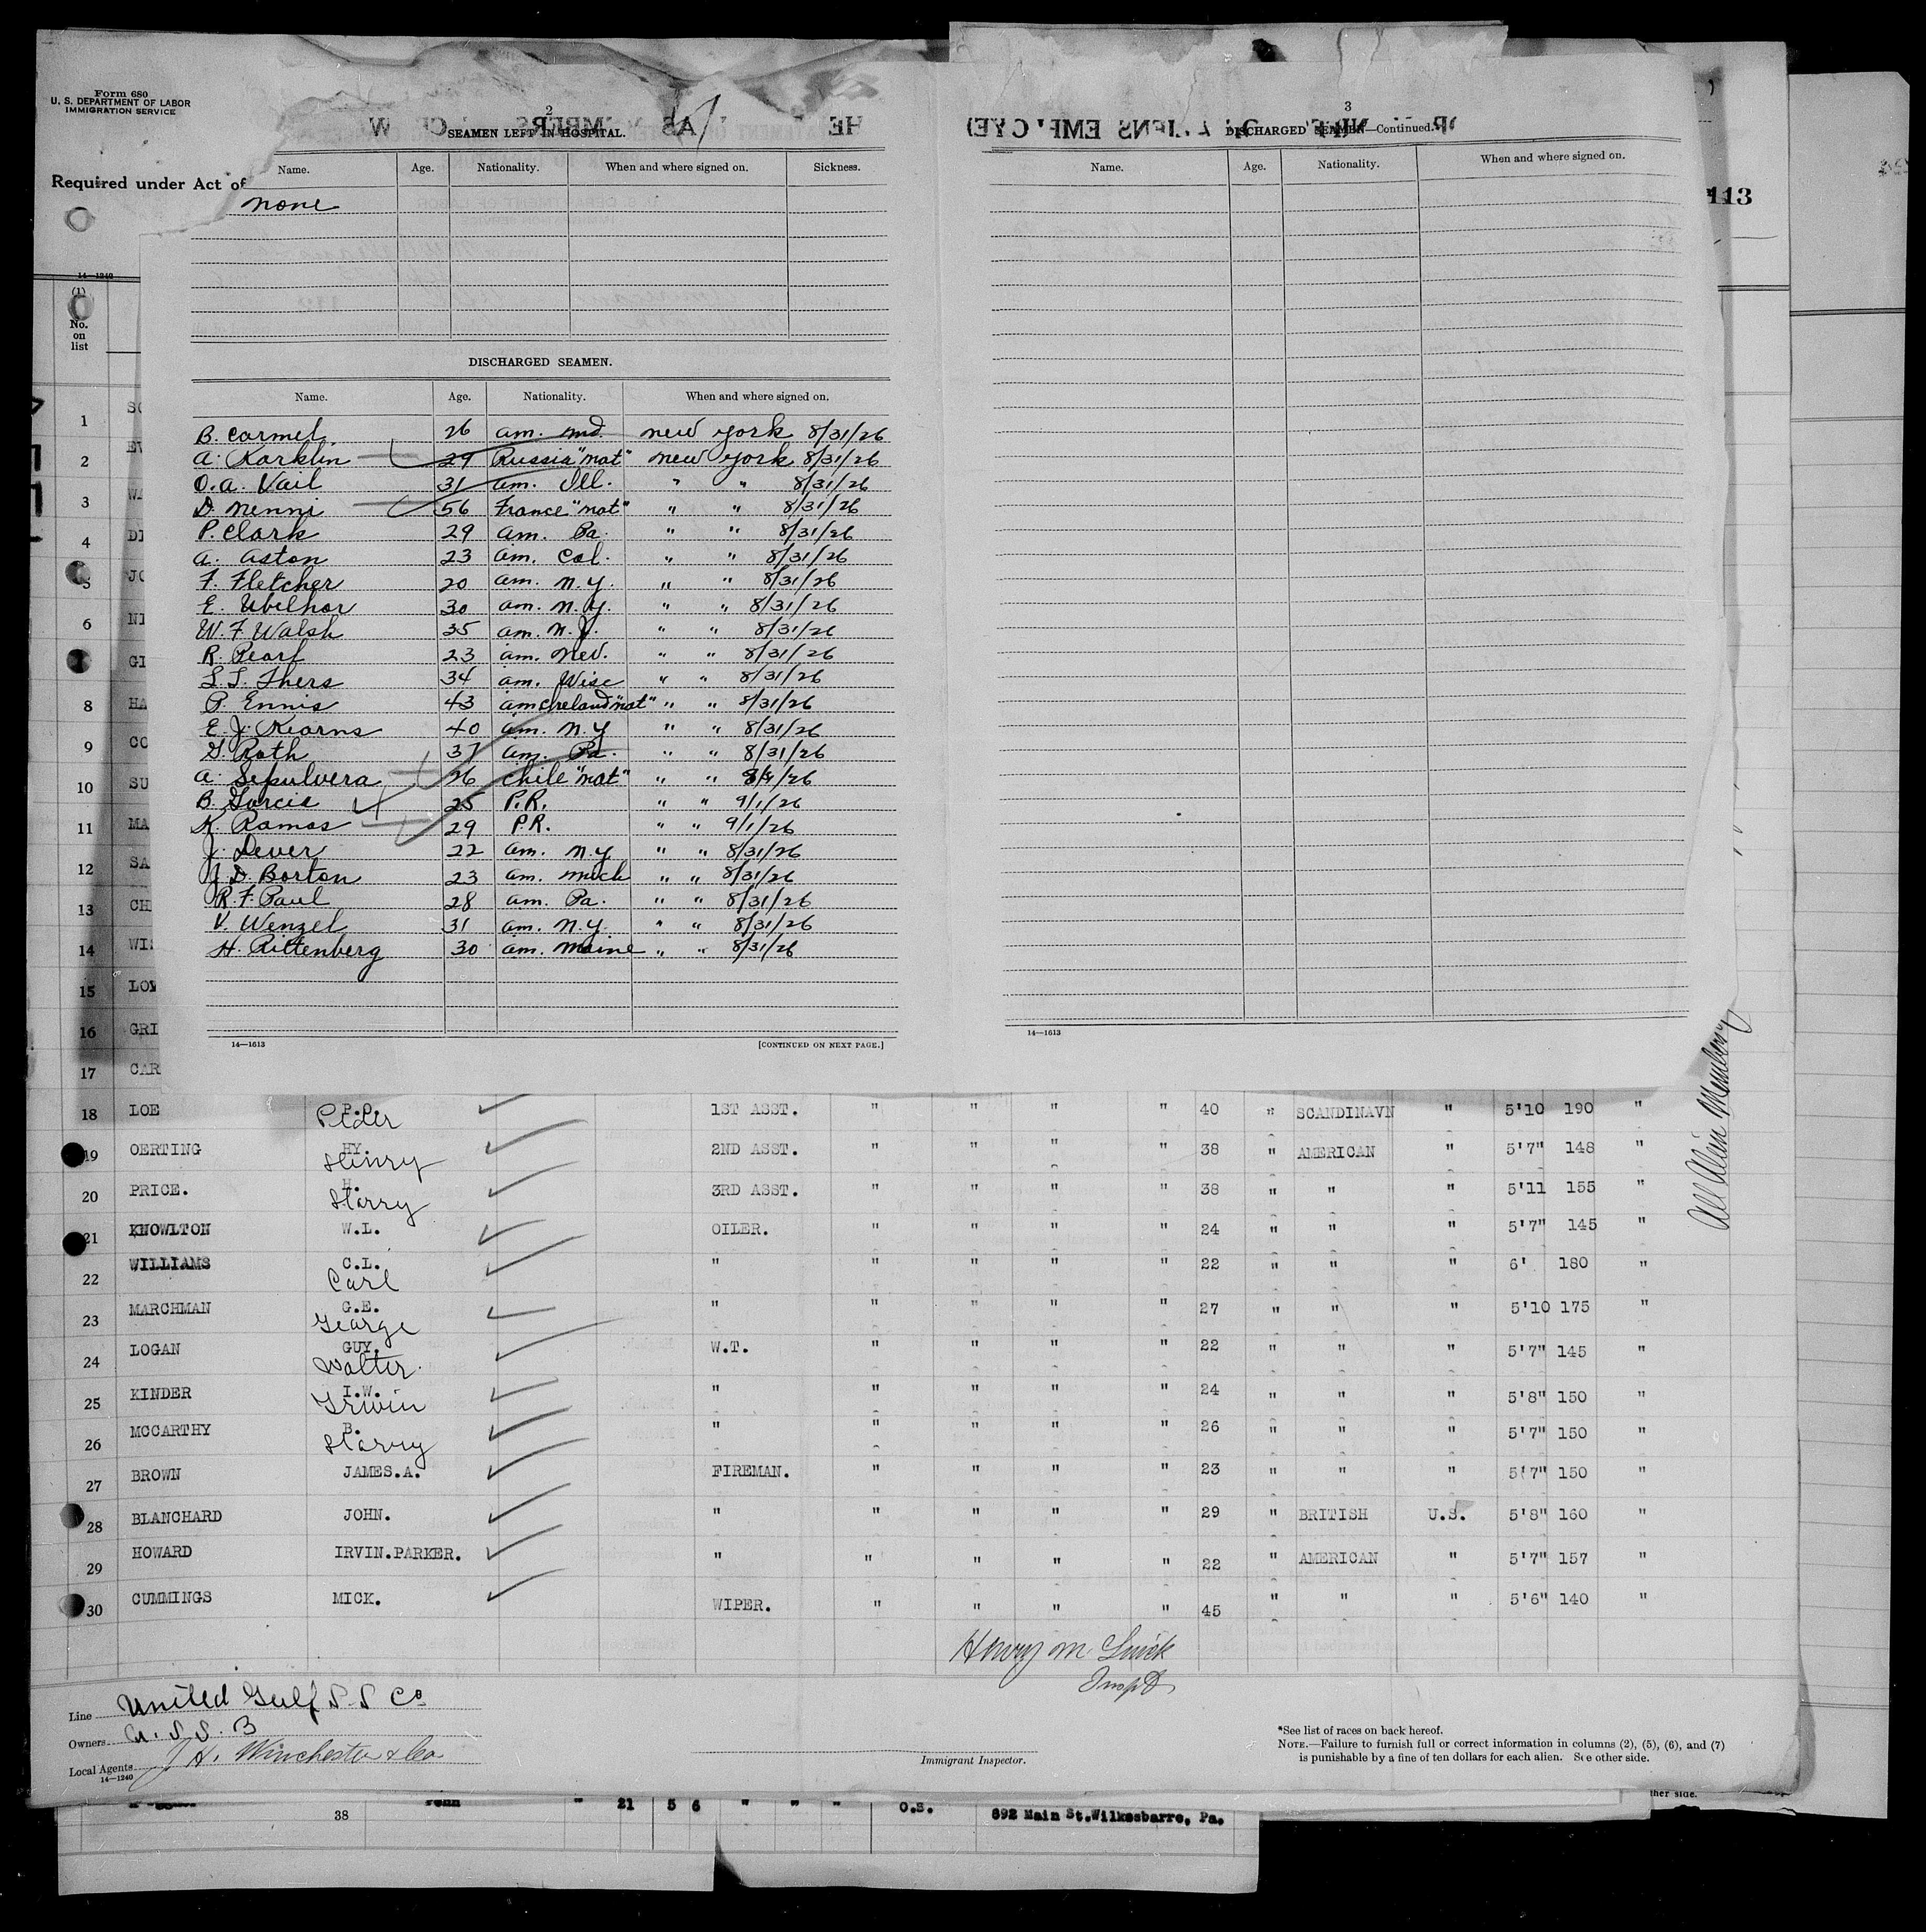 Form 680
U. S. DEPARTMENT OF LABOR
IMMIGRATION SERVICE
Required under Act of
14—1240
(1)
No. on list
113
2
SEAMEN LEFT IN HOSPITAL.
Name. Age. Nationality. When and where signed on. Sickness.
none
DISCHARGED SEAMEN.
Name. Age. Nationality. When and where signed on.
B. Carmel 26 am. md. new york 8/31/26
A. Karklin 29 Russia "nat" new york 8/31/26
O. a. Vail 31 am. Ill. " " 8/31/26
D. Menni 56 France "nat" " " 8/31/26
P. Clark 29 am. Pa. " " 8/31/26
a. Aston 23 am. Col. " " 8/31/26
F. Fletcher 20 am. n.y. " " 8/31/26
E. 30 am. n.y. " " 8/31/26
W. F Walsh 35 am. n.J. " " 8/31/26
R. Pearl 23 am. nev. " " 8/31/26
34 am. Wisc " " 8/31/26
P. Ennis 43 am Ireland "nat" " " 8/31/26
E. J. Kearns 40 am. n.y " " 8/31/26
G. Roth 37 am. Pa. " " 8/31/26
a. Sepulvera 26 Chile "nat" " " /26
B. Garcia 25 P.R. " " 9/1/26
K. Ramos 29 P.R. " " 9/1/26
J. Dever 22 am. n.y " " 8/31/26
J. D. Borton 23 am. mich " " 8/31/26
R. F. Paul 28 am. Pa. " " 8/31/26
V. Wenzel 31 am. n.y. " " 8/31/26
H. Rittenberg 30 am. maine " " 8/31/26
14—1613
[CONTINUED ON NEXT PAGE.]
3
DISCHARGED SEAMEN—Continued.
Name. Age. Nationality. When and where signed on.
14—1613
All Alien Members
1
2
3
4
5
6
8
9
10 SU
11 MA
12 SA
13 CH
14 WI
15 LOW
16 GRI
17 CAR
18 LOE P.O. Peder 1ST ASST. " " " " 40 " SCANDINAVN " 5'10 190 "
19 OERTING HY. Henry 2ND ASST. " " " " 38 " AMERICAN " 5'7" 148 "
20 PRICE. H. Harry 3RD ASST. " " " " 38 " " " 5'11 155 "
21 KNOWLTON W.L. OILER. " " " " 24 " " " 5'7" 145 "
22 WILLIAMS C.L. Carl " " " " " 22 " " " 6' 180 "
23 MARCHMAN G.E. George " " " " " 27 " " " 5'10 175 "
24 LOGAN GUY. Walter W.T. " " " " 22 " " " 5'7" 145 "
25 KINDER I.W. Irwin " " " " " 24 " " " 5'8" 150 "
26 MCCARTHY B. Harry " " " " " 26 " " " 5'7" 150 "
27 BROWN JAMES.A. FIREMAN. " " " " 23 " " " 5'7" 150 "
28 BLANCHARD JOHN. " " " " " 29 " BRITISH U.S. 5'8" 160 "
29 HOWARD IRVIN.PARKER. " " " " " 22 " AMERICAN " 5'7" 157 "
30 CUMMINGS MICK. WIPER. " " " " 45 " " " 5'6" 140 "
Henry M
Insp
Line United Gulf S S Co
Owners U. S. S. B
Local Agents J H. Winchester & Co
14—1240
Immigrant Inspector.
*See list of races on back hereof.
NOTE.—Failure to furnish full or correct information in columns (2), (5), (6), and (7)
is punishable by a fine of ten dollars for each alien. See other side.
other side.
38 Penn " 21 5 6 " " " O.S. 692 Main St.Wilkesbarre, Pa.